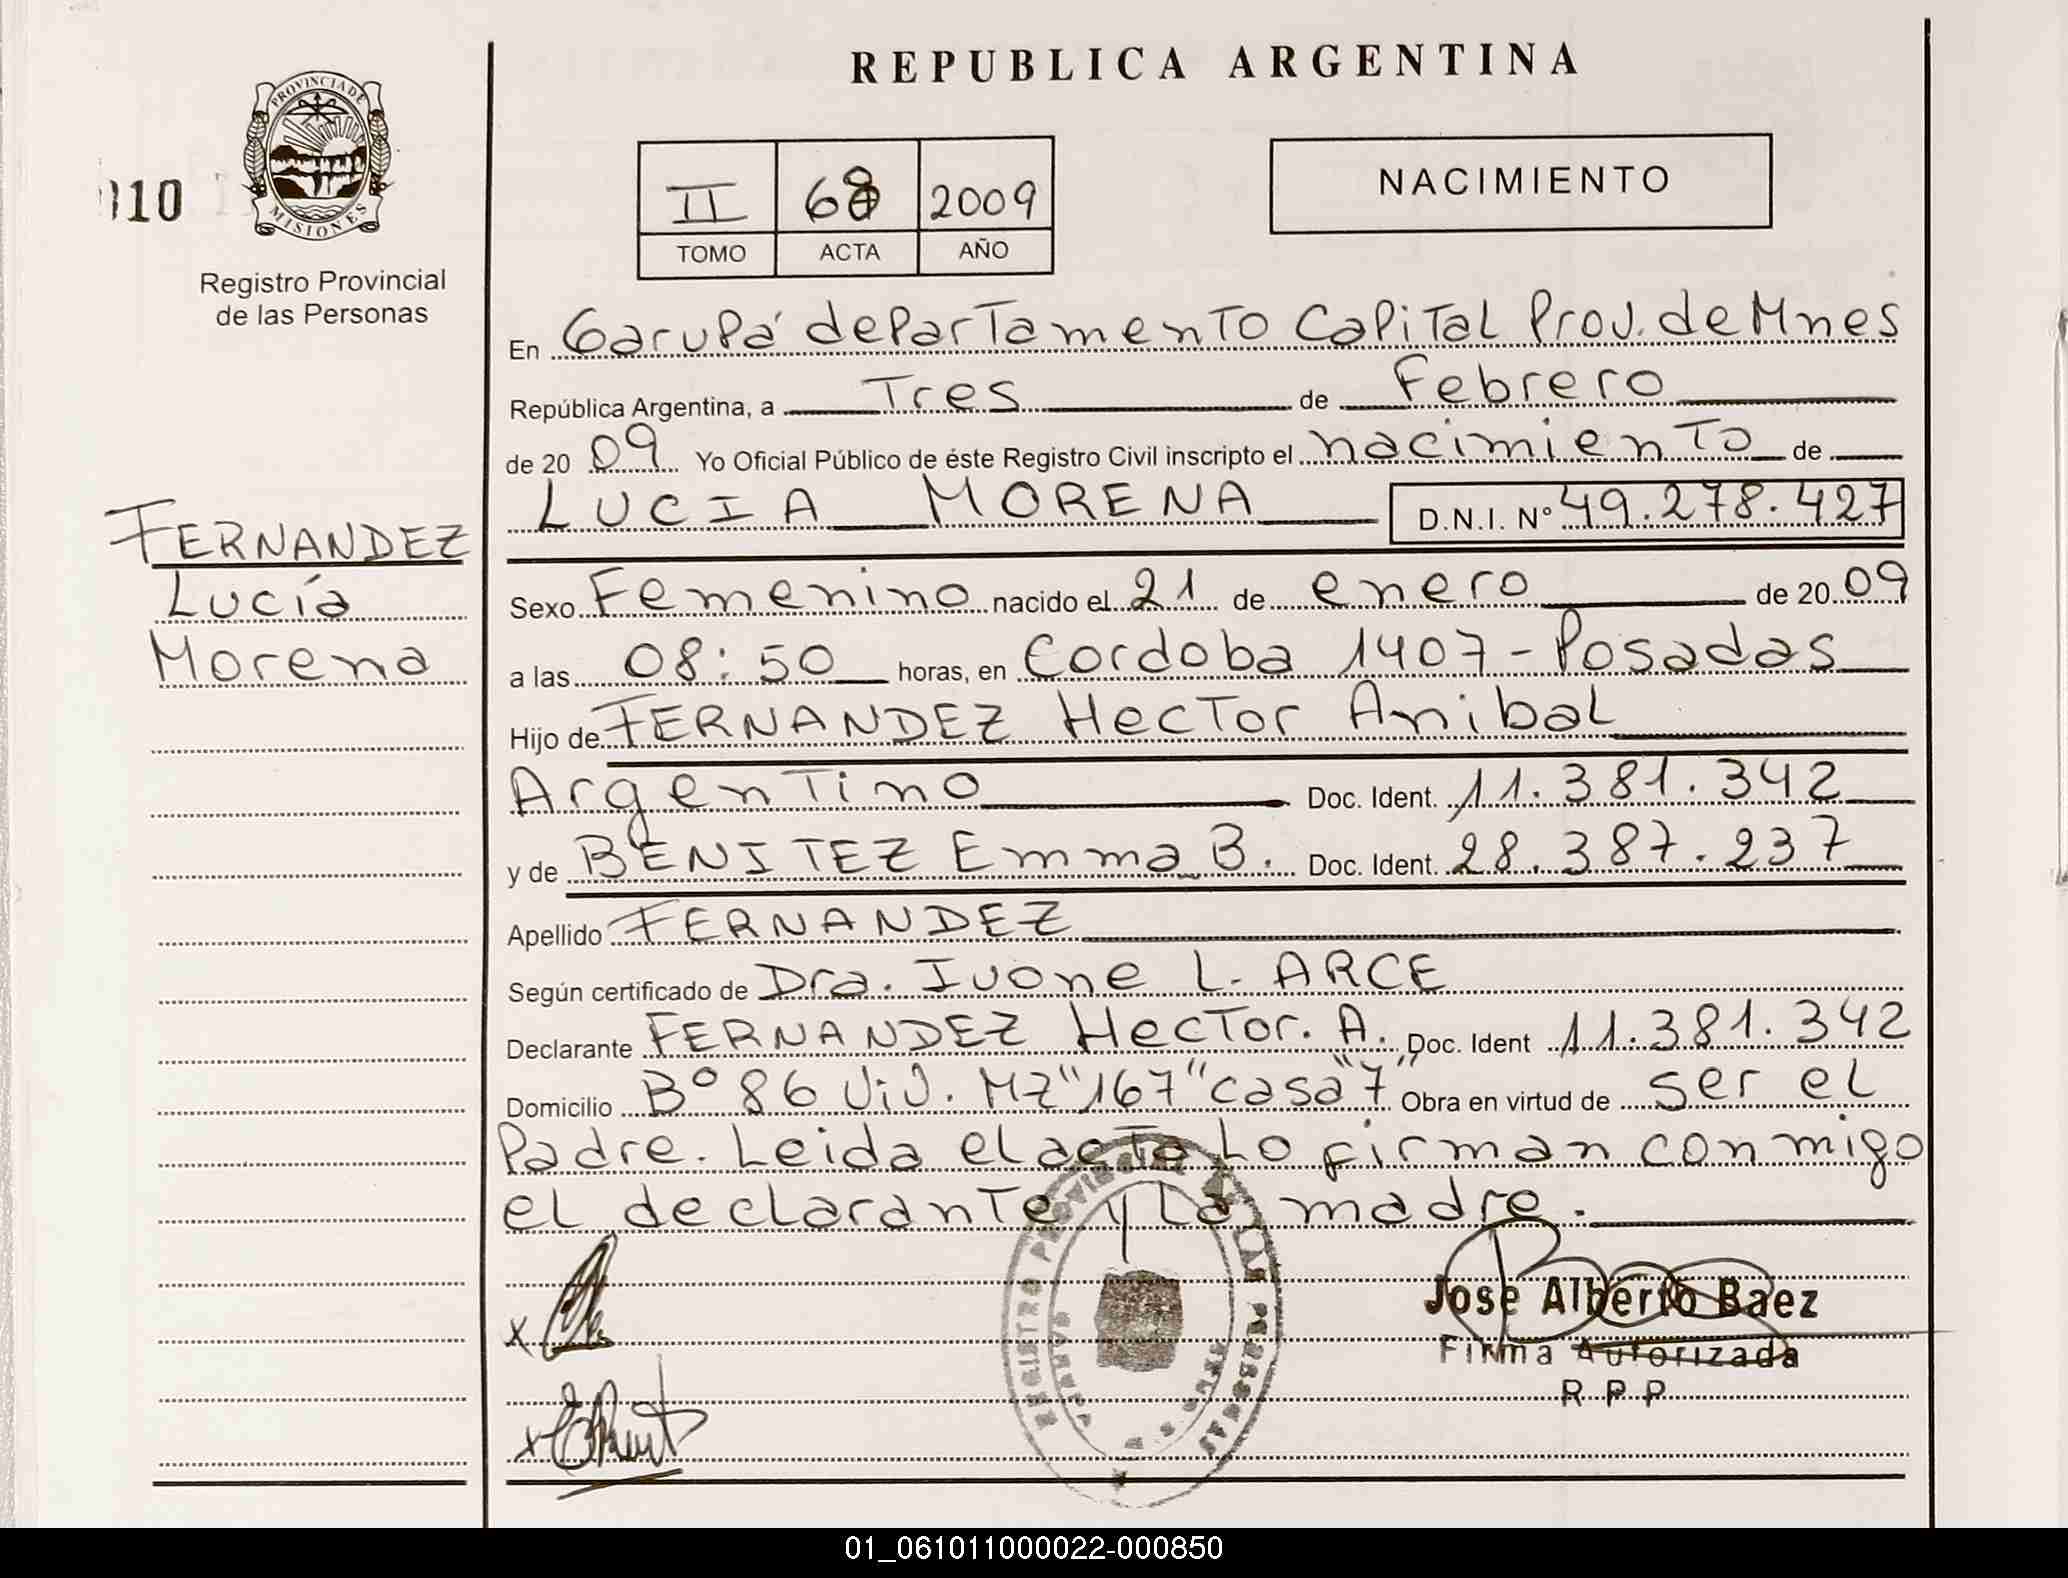 REPUBLICA ARGENTINA
PROVINCIA DE
MISIONES
110
Registro Provincial
de las Personas
II 2009
TOMO ACTA AÑO
NACIMIENTO
En Garupá departamento Capital Prov. de Mnes
República Argentina, a Tres de Febrero
de 20 09 Yo Oficial Público de éste Registro Civil inscripto el nacimiento de
LUCIA MORENA D.N.I. Nº 49.278.427
FERNANDEZ
Lucía
Morena
Sexo Femenino nacido el 21 de enero de 20 09
a las 08:50 horas, en Cordoba 1407 - Posadas
Hijo de FERNANDEZ Hector Anibal
Argentino Doc. Ident. 11.381.342
y de BENITEZ Emma B. Doc. Ident. 28.387.237
Apellido FERNANDEZ
Según certificado de Dra. Ivone L. ARCE
Declarante FERNANDEZ Hector. A. Doc. Ident 11.381.342
Domicilio Bº 86 Viv. Mz "167" casa "7" Obra en virtud de ser el
Padre. Leida el acta Lo firman conmigo
el declarante y La madre.
REGISTRO PROVINCIAL DE LAS PERSONAS
Jose Alberto Baez
Firma Autorizada
R P P
x
x
01_061011000022-000850